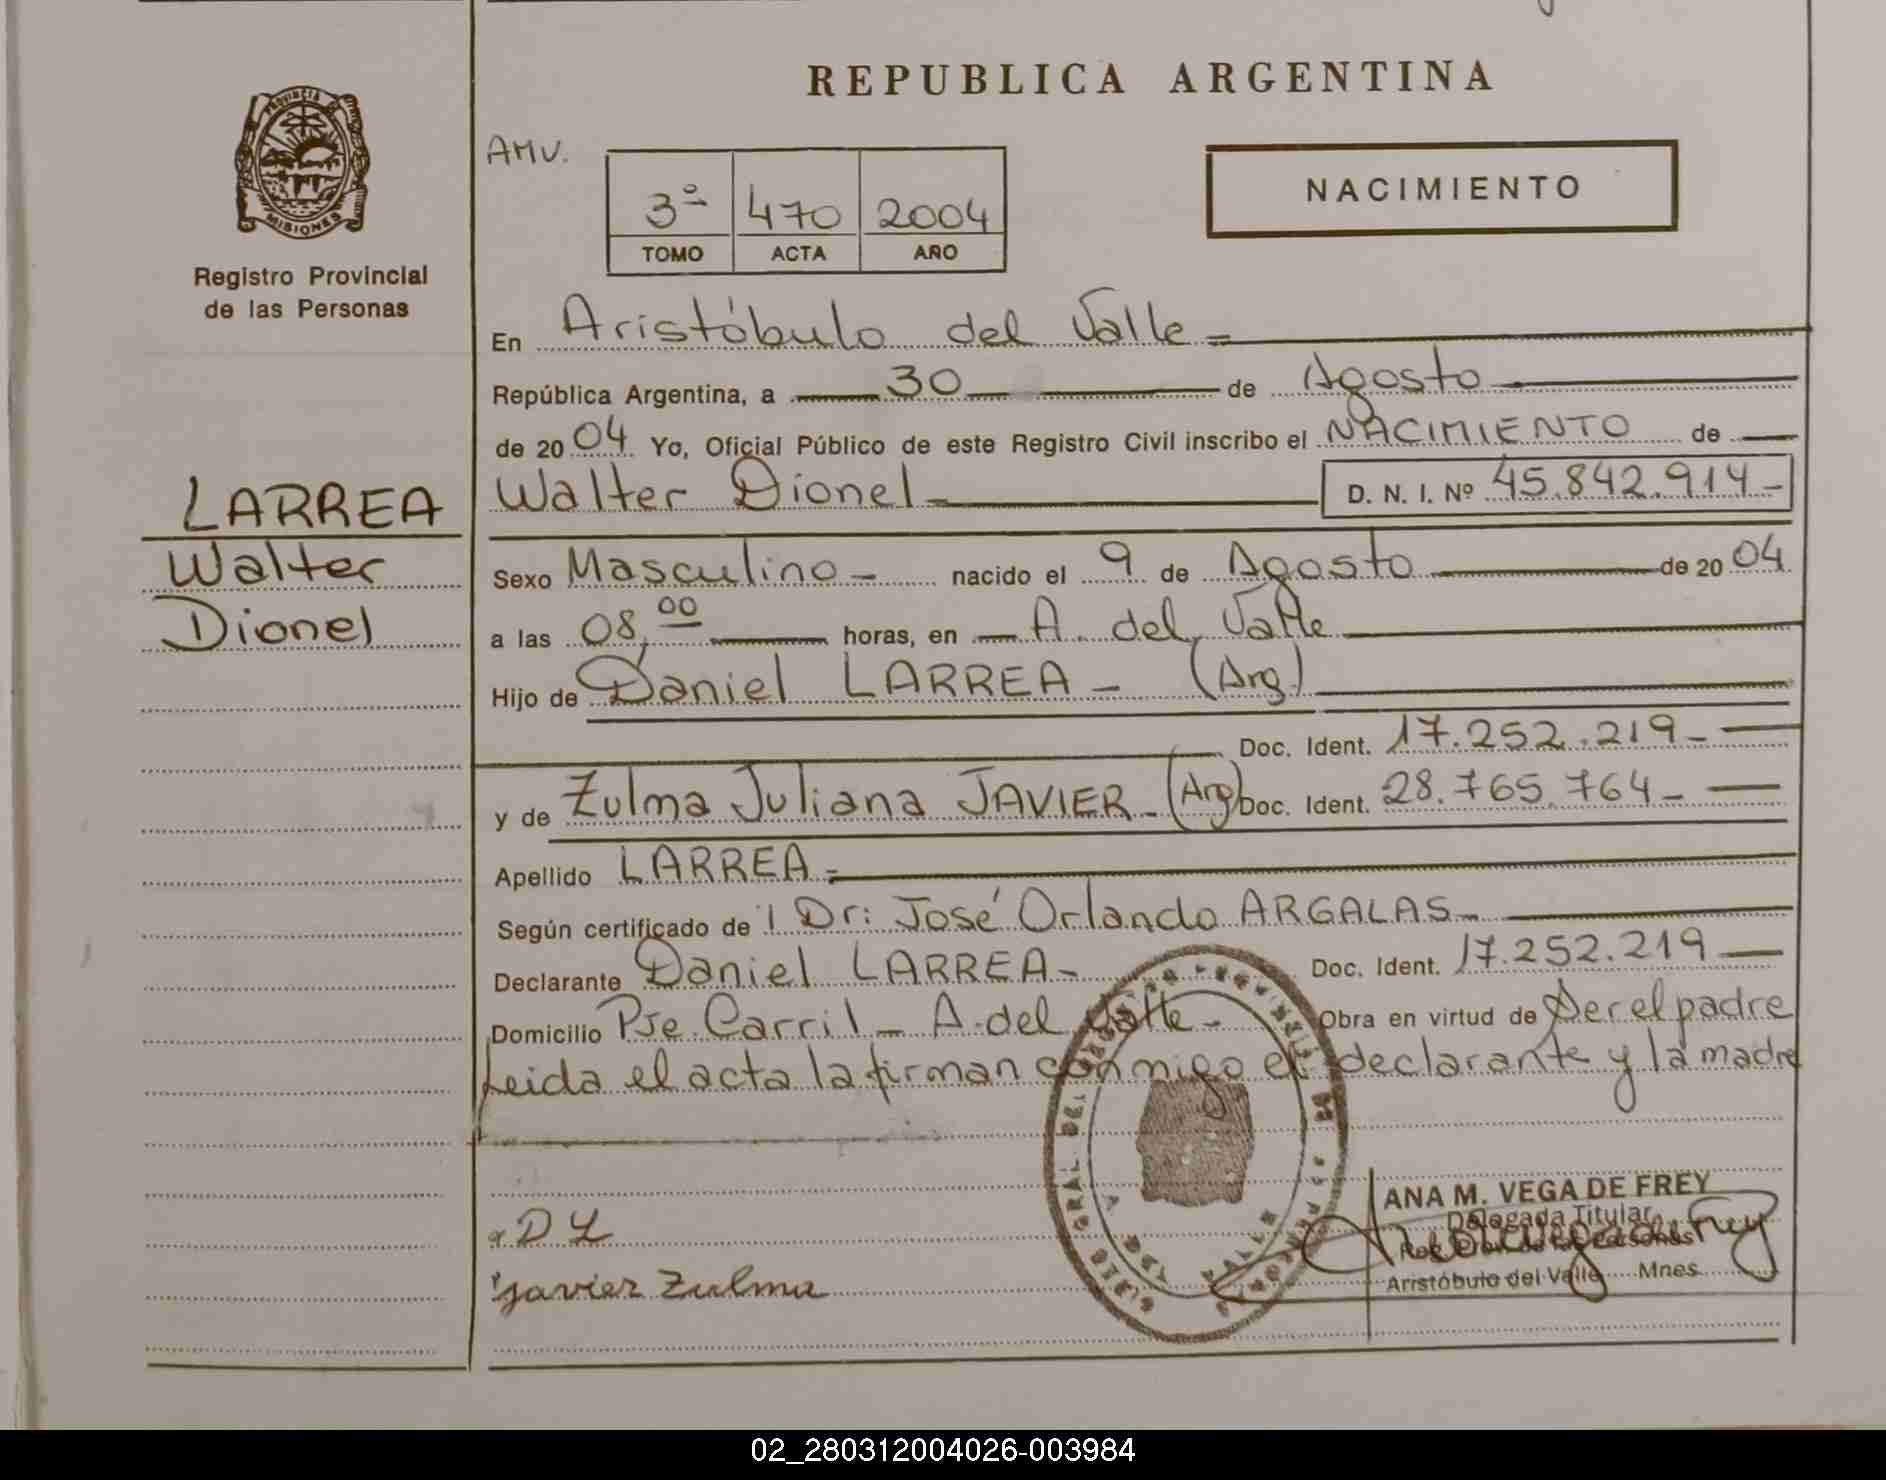 REPUBLICA ARGENTINA
PROVINCIA
MISIONES
Registro Provincial
de las Personas
AMV.
NACIMIENTO
3º 470 2004
TOMO ACTA AÑO
En Aristóbulo del Valle =
República Argentina, a 30 de Agosto
de 20 04 Yo, Oficial Público de este Registro Civil inscribo el NACIMIENTO de
LARREA
Walter
Dionel
Walter Dionel D. N. I. Nº 45.842.914-
Sexo Masculino - nacido el 9 de Agosto de 20 04
a las 08,00 horas, en A. del Valle
Hijo de Daniel LARREA - (Arg.)
Doc. Ident. 17.252.219-
y de Zulma Juliana JAVIER - (Arg) Doc. Ident. 28.765.764-
Apellido LARREA =
Según certificado de l Dr: José Orlando ARGALAS -
Declarante Daniel LARREA - Doc. Ident. 17.252.219
Domicilio Pje. Carril - A. del Valle - Obra en virtud de Ser el padre
Leida el acta la firman conmigo el declarante y la madre
D L
Javier Zulma
ANA M. VEGA DE FREY
Delegada Titular
Aristóbulo del Valle Mnes
02_280312004026-003984